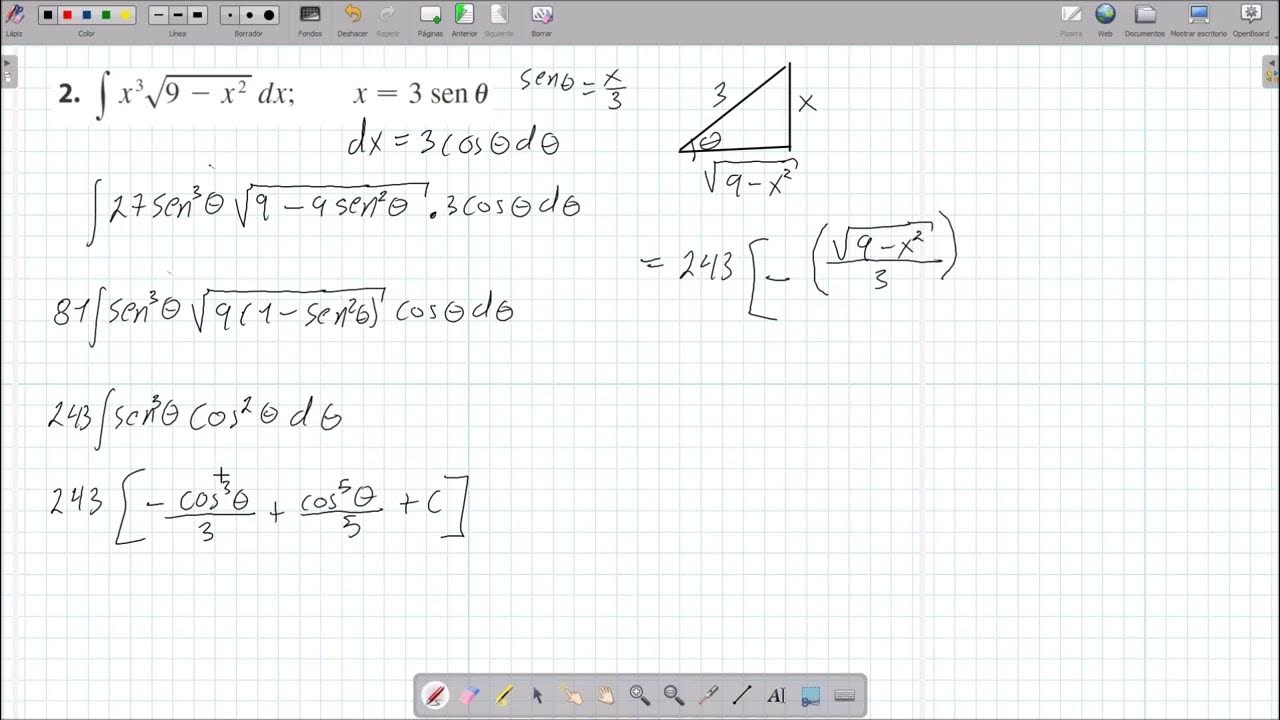 Lápiz Color Línea Borrador Fondos Deshacer Repetir Páginas Anterior Siguiente Borrar Pizarra Web Documentos Mostrar escritorio OpenBoard
2. ∫ x³√(9 − x²) dx; x = 3 sen θ
senθ = x/3
dx = 3cosθdθ
3
x
θ
√(9 − x²)
∫27sen³θ√(9 − 9sen²θ) . 3cosθdθ
= 243 [ − (√(9 − x²)/3)
81∫sen³θ√(9(1 − sen²θ)) cosθdθ
243∫sen³θ cos²θ dθ
243 [ − cos³θ/3 + cos⁵θ/5 + C ]
AI